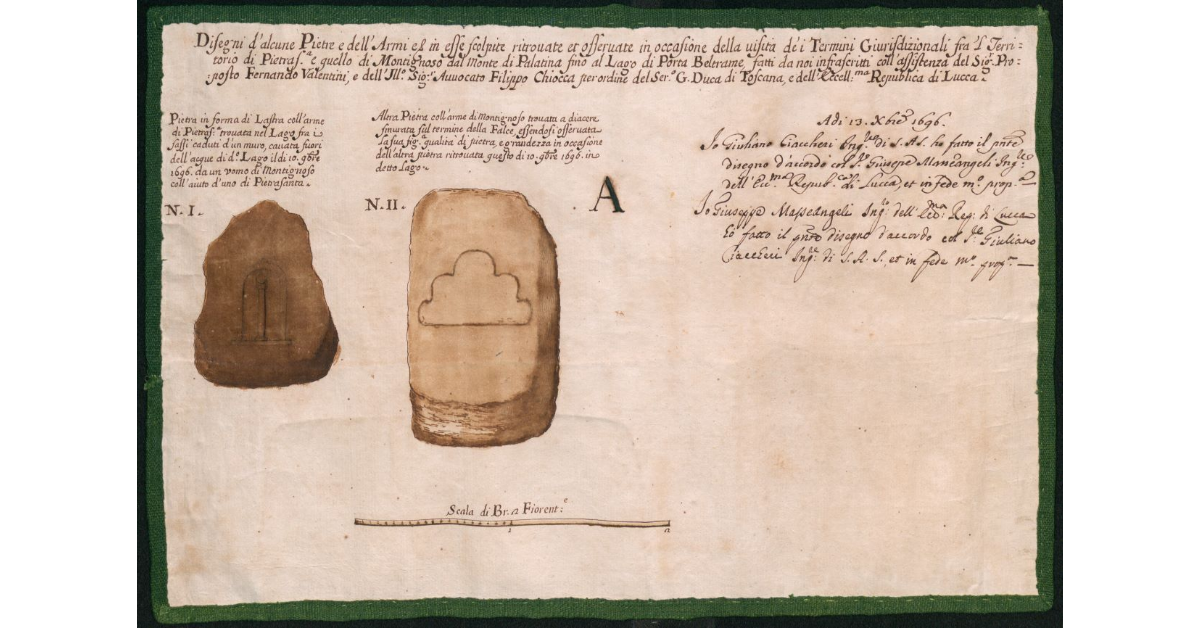 Disegni d'alcune Pietre e dell'Armi ch'in esse scolpite ritrovate et osservate in occasione della visita de'i Termini Giurisdizionali fra 'l Terri=
torio di Pietrasª e quello di Montignoso dal Monte di Palatina fino al Lago di Porta Beltrame, fatti da noi infrascritti coll'assistenza del Sigr. Pro=
posto Fernando Valentini, e dell' Illº. Sigr. Avvocato Filippo Chiocca per ordine del Serº. G. Duca di Toscana, e dell'Eccell:ma Republica di Lucca.
Pietra in forma di Lastra coll'arme
di Pietrasª trovata nel Lago fra i
sassi caduti d'un muro, cavata fuori
dell'acque di dº. Lago il dì 10. 9bre
1696. da un uomo di Montignoso
coll'aiuto d'uno di Pietrasanta.
Altra Pietra coll'arme di Montignoso trovata a diacere
smurata sul termine della Falce, essendosi osservata
la sua figª qualità di pietra, e grandezza in occasione
dell'altra pietra ritrovata questo dì 10. 9bre 1696. in
detto Lago.
N. I.
N. II.
A
Adi 13. Xbre 1696.
Io Giuliano Ciaccheri Ingre di S. A. S. ho fatto il pnte
disegno d'accordo col Sr. Giuseppe Masseangeli Ingre
dell' Ecc.ma Repub.ca di Lucca, et in fede mº. propª
Io Giuseppe Masseangeli Ingre dell' Ecc.ma Rep: di Lucca
hò fatto il pnte disegno d'accordo col Sr. Giuliano
Ciaccheri Ingre di S. A. S., et in fede mº. propª
Scala di Br. 2 Fiorent:e
1
2